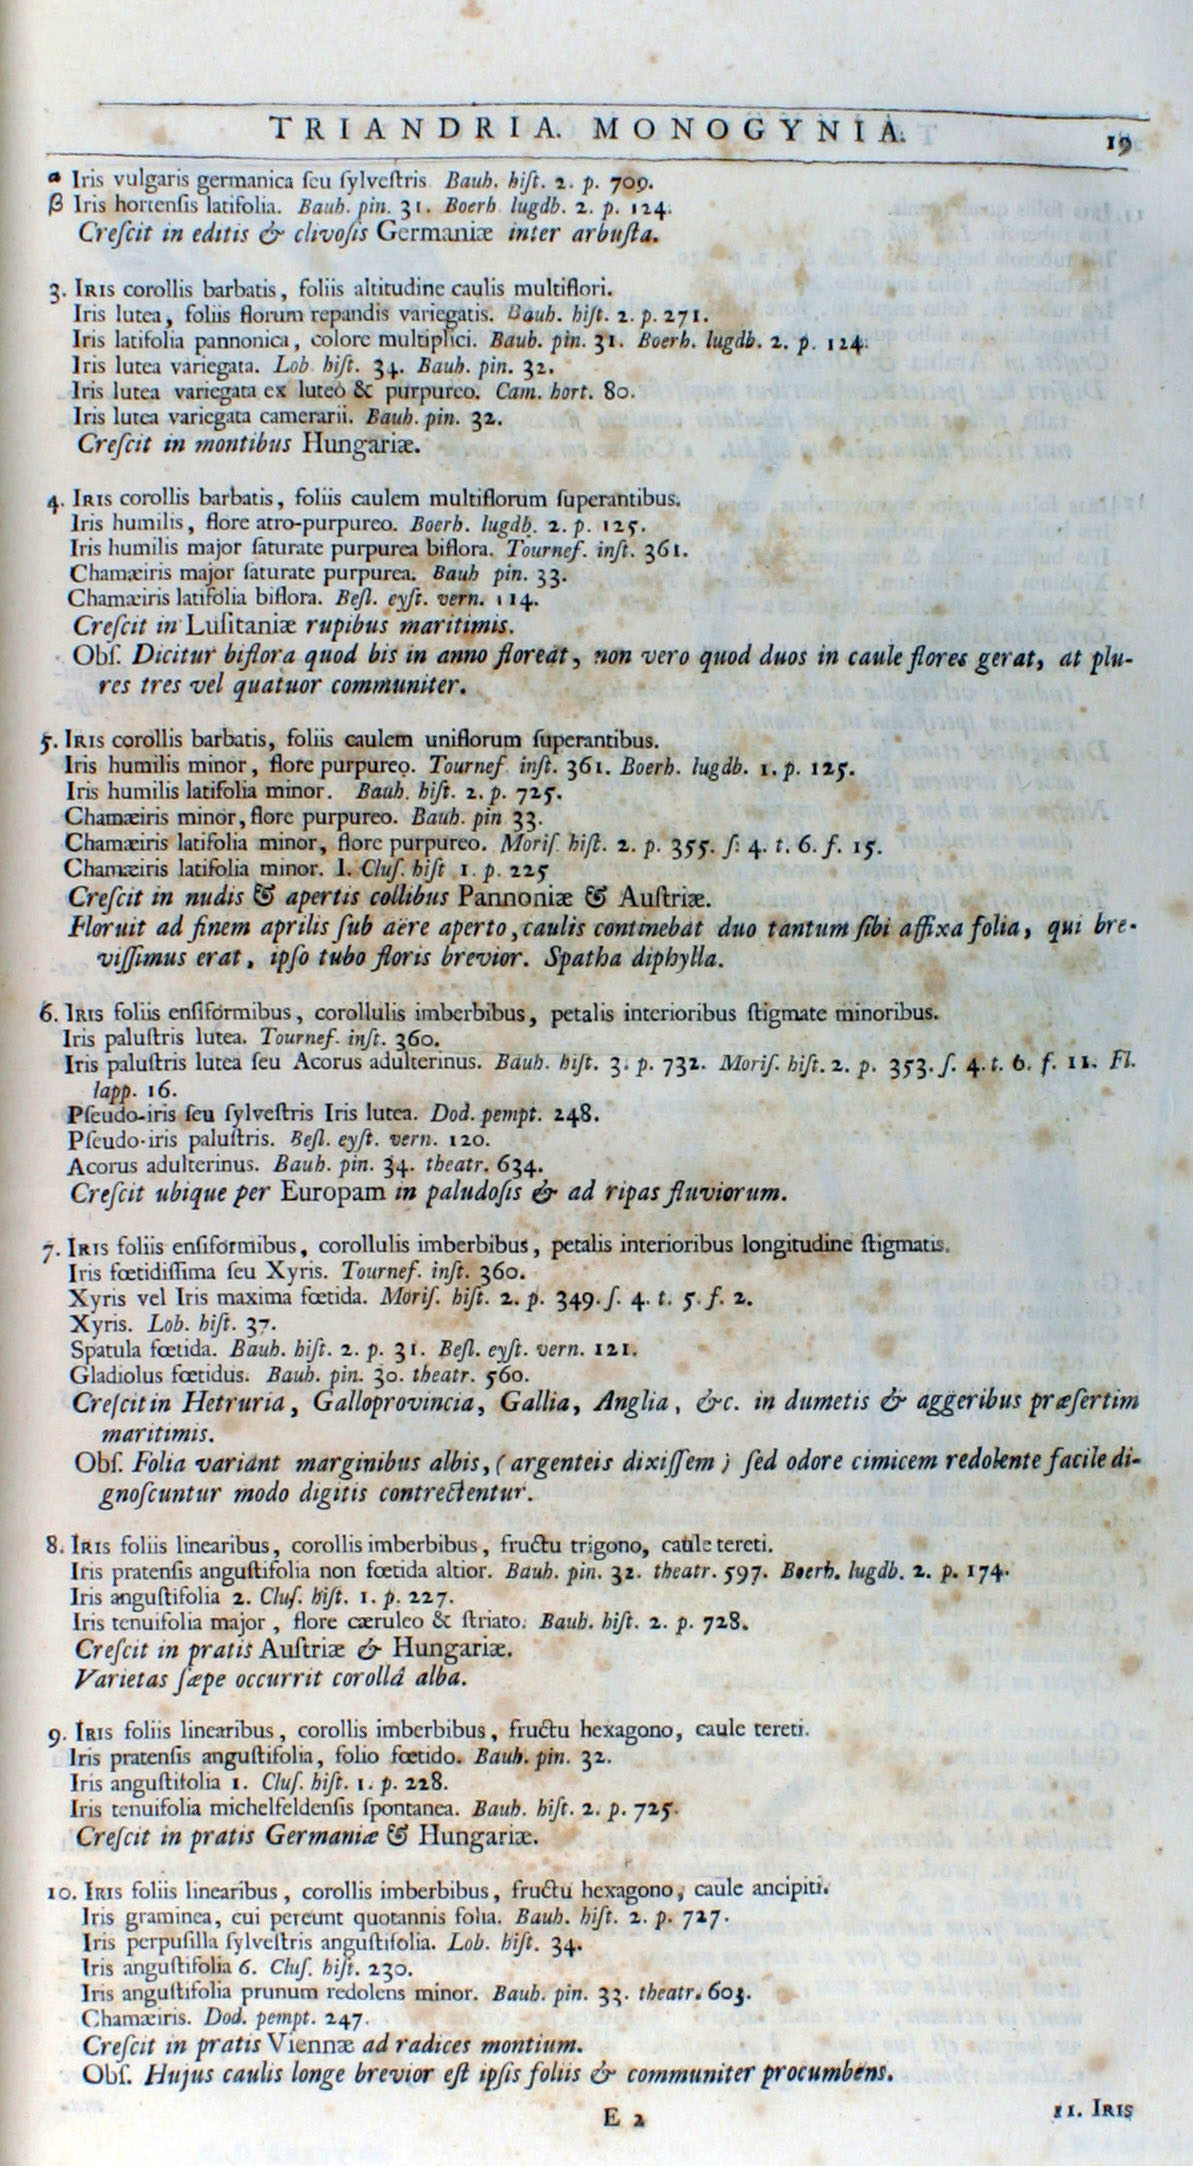 TRIANDRIA. MONOGYNIA. 19
α Iris vulgaris germanica ſeu ſylveſtris Bauh. hiſt. 2. p. 709.
β Iris hortenſis latifolia. Bauh. pin. 31. Boerh lugdb. 2. p. 124.
Creſcit in editis & clivoſis Germaniæ inter arbuſta.
3. IRIS corollis barbatis, foliis altitudine caulis multiflori.
Iris lutea, foliis florum repandis variegatis. Bauh. hiſt. 2. p. 271.
Iris latifolia pannonica, colore multiplici. Bauh. pin. 31. Boerh. lugdb. 2. p. 124.
Iris lutea variegata. Lob hiſt. 34. Bauh. pin. 32.
Iris lutea variegata ex luteo & purpureo. Cam. hort. 80.
Iris lutea variegata camerarii. Bauh. pin. 32.
Creſcit in montibus Hungariæ.
4. IRIS corollis barbatis, foliis caulem multiflorum ſuperantibus.
Iris humilis, flore atro-purpureo. Boerh. lugdb. 2. p. 125.
Iris humilis major ſaturate purpurea biflora. Tournef. inſt. 361.
Chamæiris major ſaturate purpurea. Bauh pin. 33.
Chamæiris latifolia biflora. Beſl. eyſt. vern. 114.
Creſcit in Luſitaniæ rupibus maritimis.
Obſ. Dicitur biflora quod bis in anno floreat, non vero quod duos in caule flores gerat, at plu-
res tres vel quatuor communiter.
5. IRIS corollis barbatis, foliis caulem uniflorum ſuperantibus.
Iris humilis minor, flore purpureo. Tournef inſt. 361. Boerh. lugdb. 1. p. 125.
Iris humilis latifolia minor. Bauh. hiſt. 2. p. 725.
Chamæiris minor, flore purpureo. Bauh. pin 33.
Chamæiris latifolia minor, flore purpureo. Moriſ. hiſt. 2. p. 355. ſ: 4. t. 6. f. 15.
Chamæiris latifolia minor. 1. Cluſ. hiſt 1. p. 225
Creſcit in nudis & apertis collibus Pannoniæ & Auſtriæ.
Floruit ad finem aprilis ſub aëre aperto, caulis continebat duo tantum ſibi affixa folia, qui bre-
viſſimus erat, ipſo tubo floris brevior. Spatha diphylla.
6. IRIS foliis enſiformibus, corollulis imberbibus, petalis interioribus ſtigmate minoribus.
Iris paluſtris lutea. Tournef. inſt. 360.
Iris paluſtris lutea ſeu Acorus adulterinus. Bauh. hiſt. 3. p. 732. Moriſ. hiſt. 2. p. 353. ſ. 4. t. 6. f. 11. Fl.
lapp. 16.
Pſeudo-iris ſeu ſylveſtris Iris lutea. Dod. pempt. 248.
Pſeudo-iris paluſtris. Beſl. eyſt. vern. 120.
Acorus adulterinus. Bauh. pin. 34. theatr. 634.
Creſcit ubique per Europam in paludoſis & ad ripas fluviorum.
7. IRIS foliis enſiformibus, corollulis imberbibus, petalis interioribus longitudine ſtigmatis.
Iris fœtidiſſima ſeu Xyris. Tournef. inſt. 360.
Xyris vel Iris maxima fœtida. Moriſ. hiſt. 2. p. 349. ſ. 4. t. 5. f. 2.
Xyris. Lob. hiſt. 37.
Spatula fœtida. Bauh. hiſt. 2. p. 31. Beſl. eyſt. vern. 121.
Gladiolus fœtidus. Bauh. pin. 30. theatr. 560.
Creſcit in Hetruria, Galloprovincia, Gallia, Anglia, &c. in dumetis & aggeribus præſertim
maritimis.
Obſ. Folia variant marginibus albis, (argenteis dixiſſem) ſed odore cimicem redolente facile di-
gnoſcuntur modo digitis contrectentur.
8. IRIS foliis linearibus, corollis imberbibus, fructu trigono, caule tereti.
Iris pratenſis anguſtifolia non fœtida altior. Bauh. pin. 32. theatr. 597. Boerh. lugdb. 2. p. 174.
Iris anguſtifolia 2. Cluſ. hiſt. 1. p. 227.
Iris tenuifolia major, flore cæruleo & ſtriato. Bauh. hiſt. 2. p. 728.
Creſcit in pratis Auſtriæ & Hungariæ.
Varietas ſæpe occurrit corollâ alba.
9. IRIS foliis linearibus, corollis imberbibus, fructu hexagono, caule tereti.
Iris pratenſis anguſtifolia, folio fœtido. Bauh. pin. 32.
Iris anguſtifolia 1. Cluſ. hiſt. 1. p. 228.
Iris tenuifolia michelfeldenſis ſpontanea. Bauh. hiſt. 2. p. 725.
Creſcit in pratis Germaniæ & Hungariæ.
10. IRIS foliis linearibus, corollis imberbibus, fructu hexagono, caule ancipiti.
Iris graminea, cui pereunt quotannis folia. Bauh. hiſt. 2. p. 727.
Iris perpuſilla ſylveſtris anguſtifolia. Lob. hiſt. 34.
Iris anguſtifolia 6. Cluſ. hiſt. 230.
Iris anguſtifolia prunum redolens minor. Bauh. pin. 33. theatr. 603.
Chamæiris. Dod. pempt. 247.
Creſcit in pratis Viennæ ad radices montium.
Obſ. Hujus caulis longe brevior eſt ipſis foliis & communiter procumbens.
E 2 11. IRIS